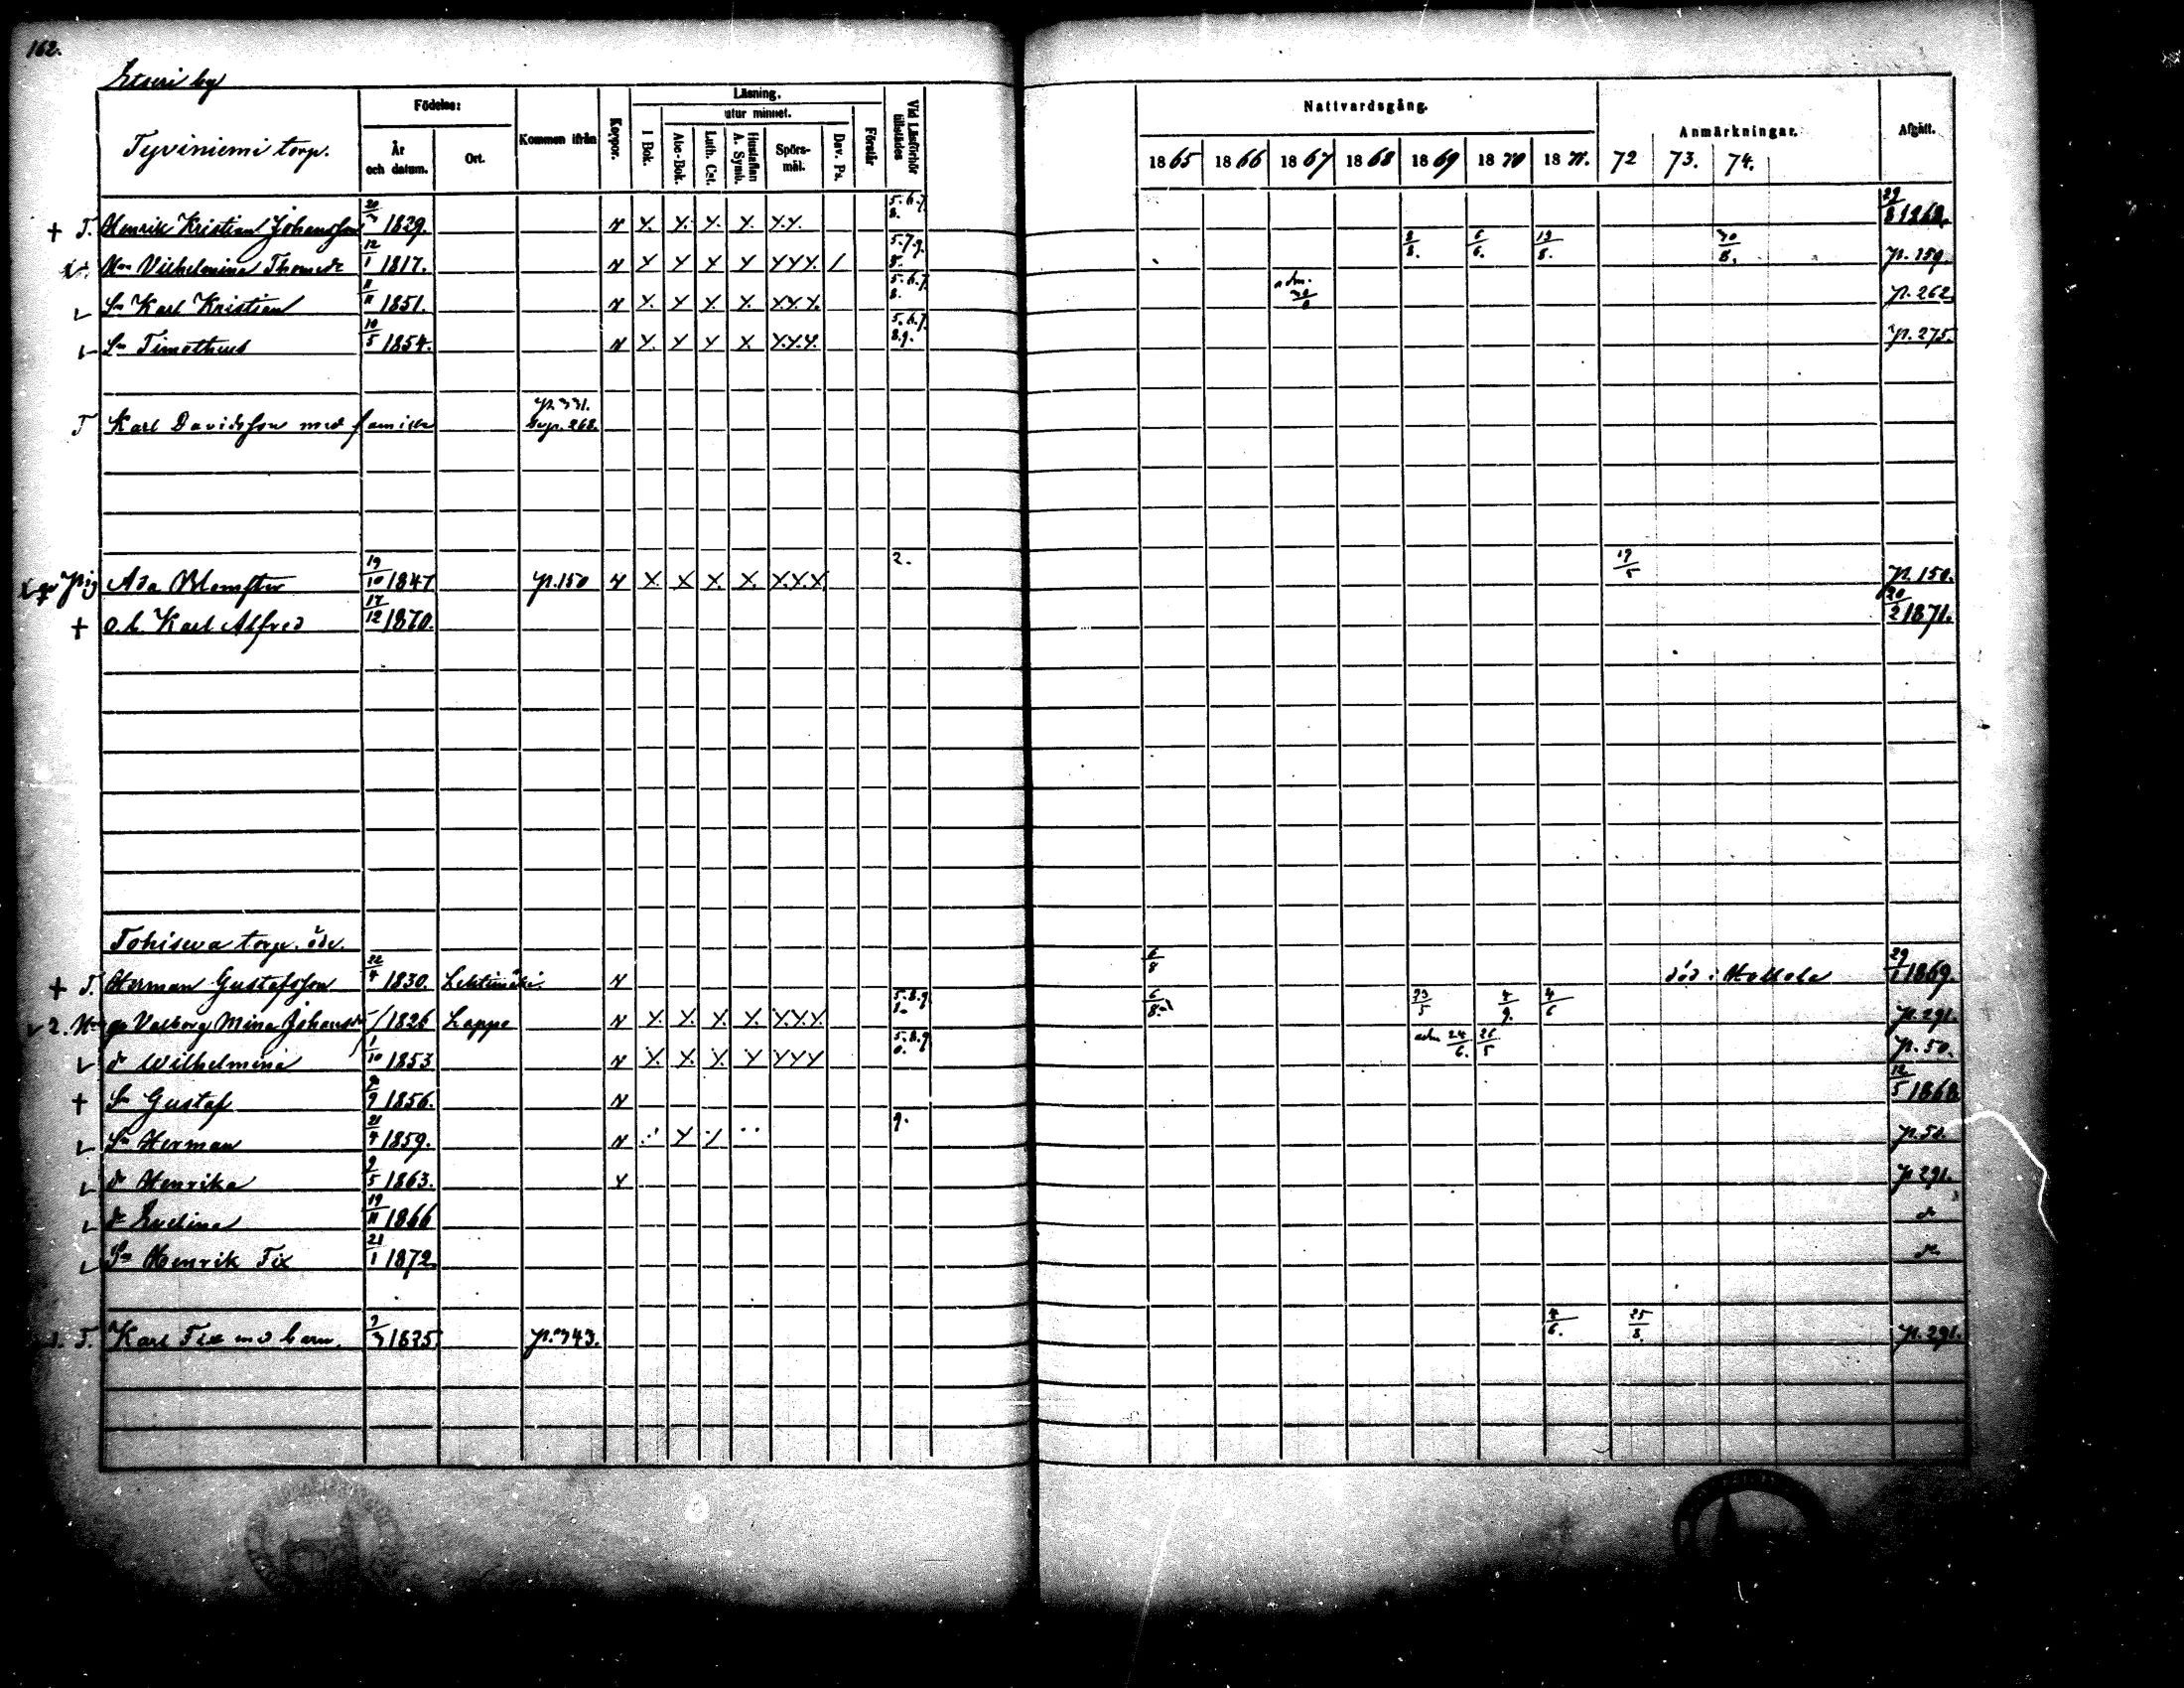 162.
Etseri by
Tyviniemi torp.
Födelse:
År och datum.
Ort.
Kommen ifrån
Koppor.
Läsning.
I Bok.
utur minnet.
Abc-Bok.
Luth. Cat.
Hustaflan A. Symb.
Spörsmål.
Dav. Ps.
Förstår.
Vid Läsförhör tillstädes
Nattvardsgång.
1865 1866 1867 1868 1869 1870 1871. 72 73. 74.
Anmärkningar.
Afgått.
+ T. Henrik Kristian Johansson 20/3 1829. X. X. X. X. X.X. 5.6.7. 8. 1868.
Hn Vilhelmina Thomedr 12/1 1817. X X X X XXX. / 5.7.9. 8/8. 6/6. 30/8. p. 159.
Sn Karl Kristian 11/11 1851. X. X. X. X. X.X.X. 5.6.7. 8. adm. p. 262
Sn Timotheus 10/5 1854. X. X X X X.X.X. 5.6.7. 8.9. p. 275.
T Karl Davidsson med familie p. 331. 268.
Pig Ada Blomster 19/10 1847 p. 150 X. X X. X. X.X.X. 2. 19/5 p. 150.
+ o.b. Karl Alfred 17/12 1870. 20/2 1871.
Tohiseva torp. öde.
+ T. Herman Gustafsson 22/4 1830. Lehtimäki 6/8 död i Hollola 29/1 1869.
2. Valborg Mina Johansdr 1826 Lappo X. X. X. X. X.X.X. 5.8.9. 6/8 23/5 4/9. 4/6 p. 291.
dr Wilhelmina 1/10 1853 X. X. X. X XXX 5.8.9. 0. adm 24/6. 26/5 p. 50.
+ Sn Gustaf 1856. 12/5 1868
Sn Herman 21/4 1859. 9. p. 50.
dr Henrika 9/5 1863. p. 291.
dr Evelina 19/11 1866 d
Sn Henrik Fix 21/1 1872
T. Karl Fix med barn. 1835 p. 343. 4/6. 25/8. p. 291.